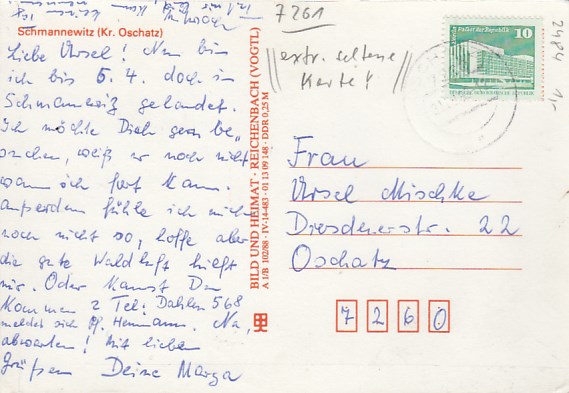 7261
Schmannewitz (Kr. Oschatz)
Liebe Ursel! Nun bin
ich bis 5.4. doch in
Schmannewitz gelandet.
Ich möchte Dich gern be„
suchen, weiß nur noch nicht
wann ich fort kann.
Außerdem fühle ich mich
noch nicht so, hoffe aber
die gute Waldluft hilft
mir. Oder kannst Du
kommen? Tel: Dahlen 568
meldet sich Pf. Hermann. Na,
abwarten! Mit lieben
Grüßen Deine Marga
BILD UND HEIMAT · REICHENBACH (VOGTL)
A 1/B 102/88 · IV-14-483 · 01 13 09 148 · DDR 0,25 M
extr. seltene
Karte!
Palast der Republik
10
2484
Frau
Ursel Mischke
Dresdenerstr. 22
Oschatz
7260